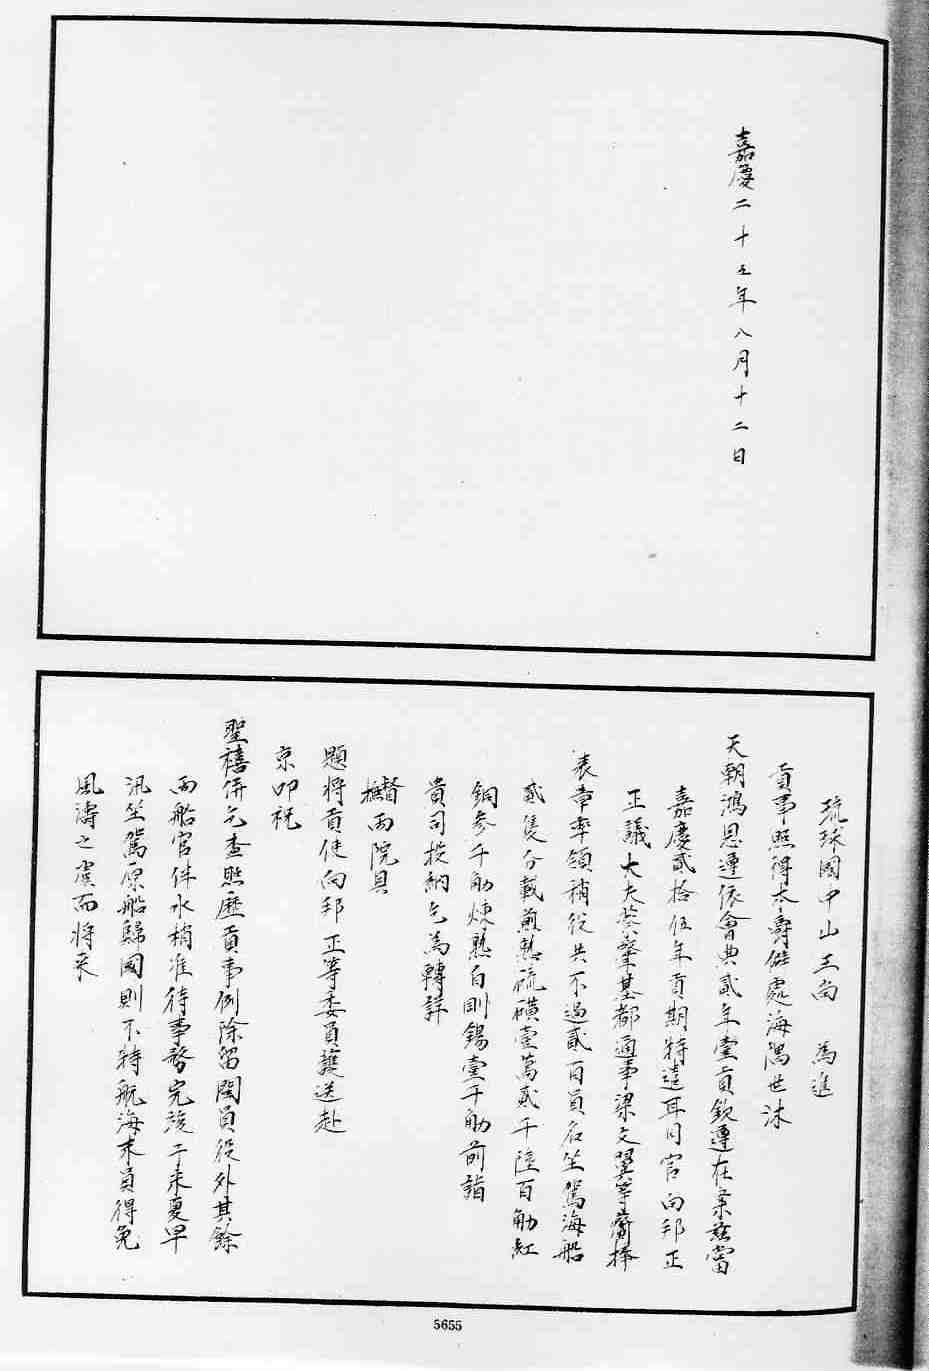 嘉慶二十五年八月十二日
琉球國中山王尚　為進
貢事照得本爵僻處海隅世沐
天朝鴻恩遵依會典貳年壹貢欽遵在案茲當
嘉慶貳拾伍年貢期特遣耳目官向邦正
正議大夫蔡肇基都通事梁文翼等齎捧
表章率領梢役共不過貳百員名坐駕海船
貳隻分載煎熟硫磺壹萬貳千陸百觔紅
銅參千觔煉熟白剛錫壹千觔前詣
貴司投納乞為轉詳
督撫兩院具
題將貢使向邦正等委員護送赴
京叩祝
聖禧併乞查照歷貢事例除留閩員役外其餘
兩船官伴水梢准待事務完竣于來夏早
汛坐駕原船歸國則不特航海末員得免
風濤之虞而將來
5655